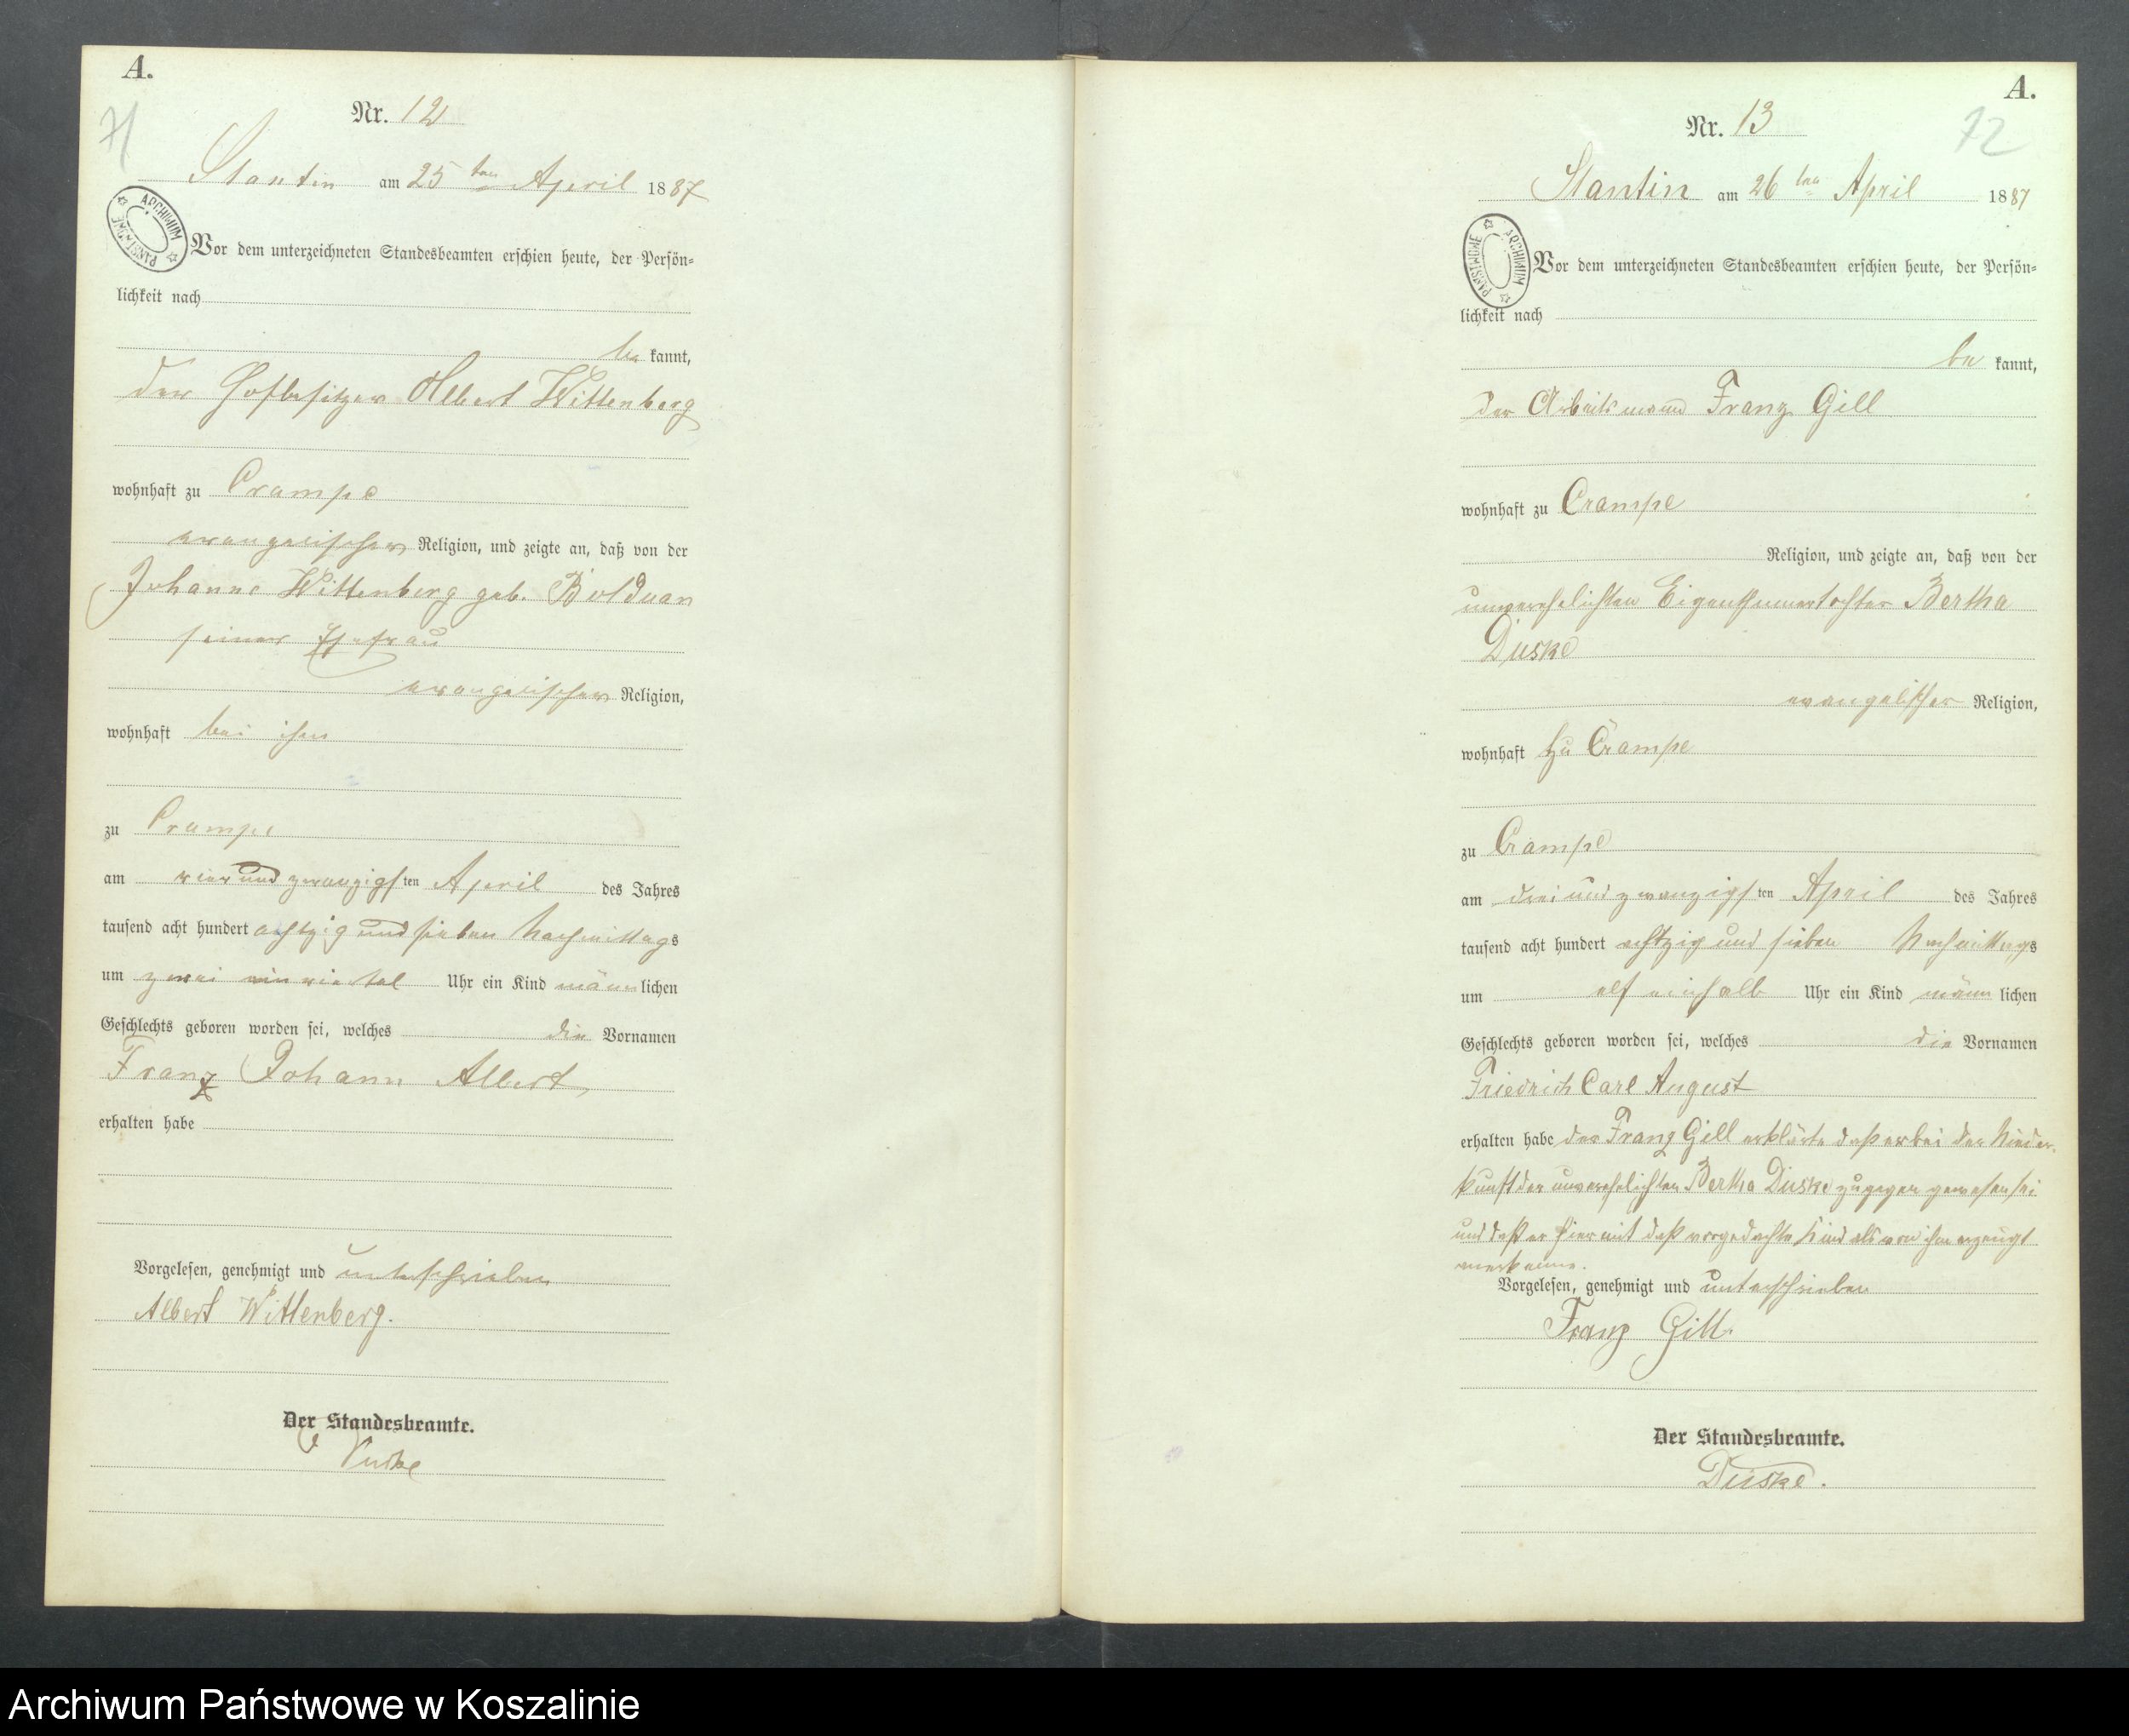 A.
71
Nr. 12
Stantin am 25ten April 1887
ARCHIWUM PAŃSTWOWE
Vor dem unterzeichneten Standesbeamten erschien heute, der Persön-
lichkeit nach
be kannt,
der Hofbesitzer Albert Wittenberg
wohnhaft zu Crampe
evangelischer Religion, und zeigte an, daß von der
Johanne Wittenberg geb. Bolduan
seiner Ehefrau
evangelischer Religion,
wohnhaft bei ihm
zu Crampe
am vierundzwanzigsten April des Jahres
tausend acht hundert achtzig und sieben Nachmittags
um zwei einviertel Uhr ein Kind männlichen
Geschlechts geboren worden sei, welches die Vornamen
Franz Johann Albert,
erhalten habe
Vorgelesen, genehmigt und unterschrieben
Albert Wittenberg.
Der Standesbeamte.
A.
72
Nr. 13
Stantin am 26ten April 1887
ARCHIWUM PAŃSTWOWE
Vor dem unterzeichneten Standesbeamten erschien heute, der Persön-
lichkeit nach
be kannt,
der Arbeitsmann Franz Gill
wohnhaft zu Crampe
Religion, und zeigte an, daß von der
unverehelichten Eigenthümertochter Bertha
Duske
evangelischer Religion,
wohnhaft zu Crampe
zu Crampe
am dreiundzwanzigsten April des Jahres
tausend acht hundert achtzig und sieben Nachmittags
um elf einhalb Uhr ein Kind männlichen
Geschlechts geboren worden sei, welches die Vornamen
Friedrich Carl August
erhalten habe der Franz Gill erklärte daß er bei der Nieder-
kunft der unverehelichten Bertha Duske zugegen gewesen sei
und daß er hiermit daß vorgedachte Kind als von ihm erzeugt
anerkenne.
Vorgelesen, genehmigt und unterschrieben
Franz Gill.
Der Standesbeamte.
Duske.
Archiwum Państwowe w Koszalinie